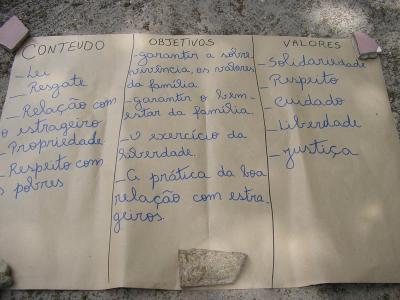 CONTEÚDO
- Lei
- Resgate
- Relação com
o estrageiro
- Propriedade
- Respeito com
s pobres
OBJETIVOS
- garantir a sobre
vivência, os valores
da família
- garantir o bem-
estar da família
- O exercício da
liberdade.
- A prática da boa
relação com estra-
geiros.
VALORES
- Solidariedade
- Respeito
- Cuidado
- Liberdade
- justiça